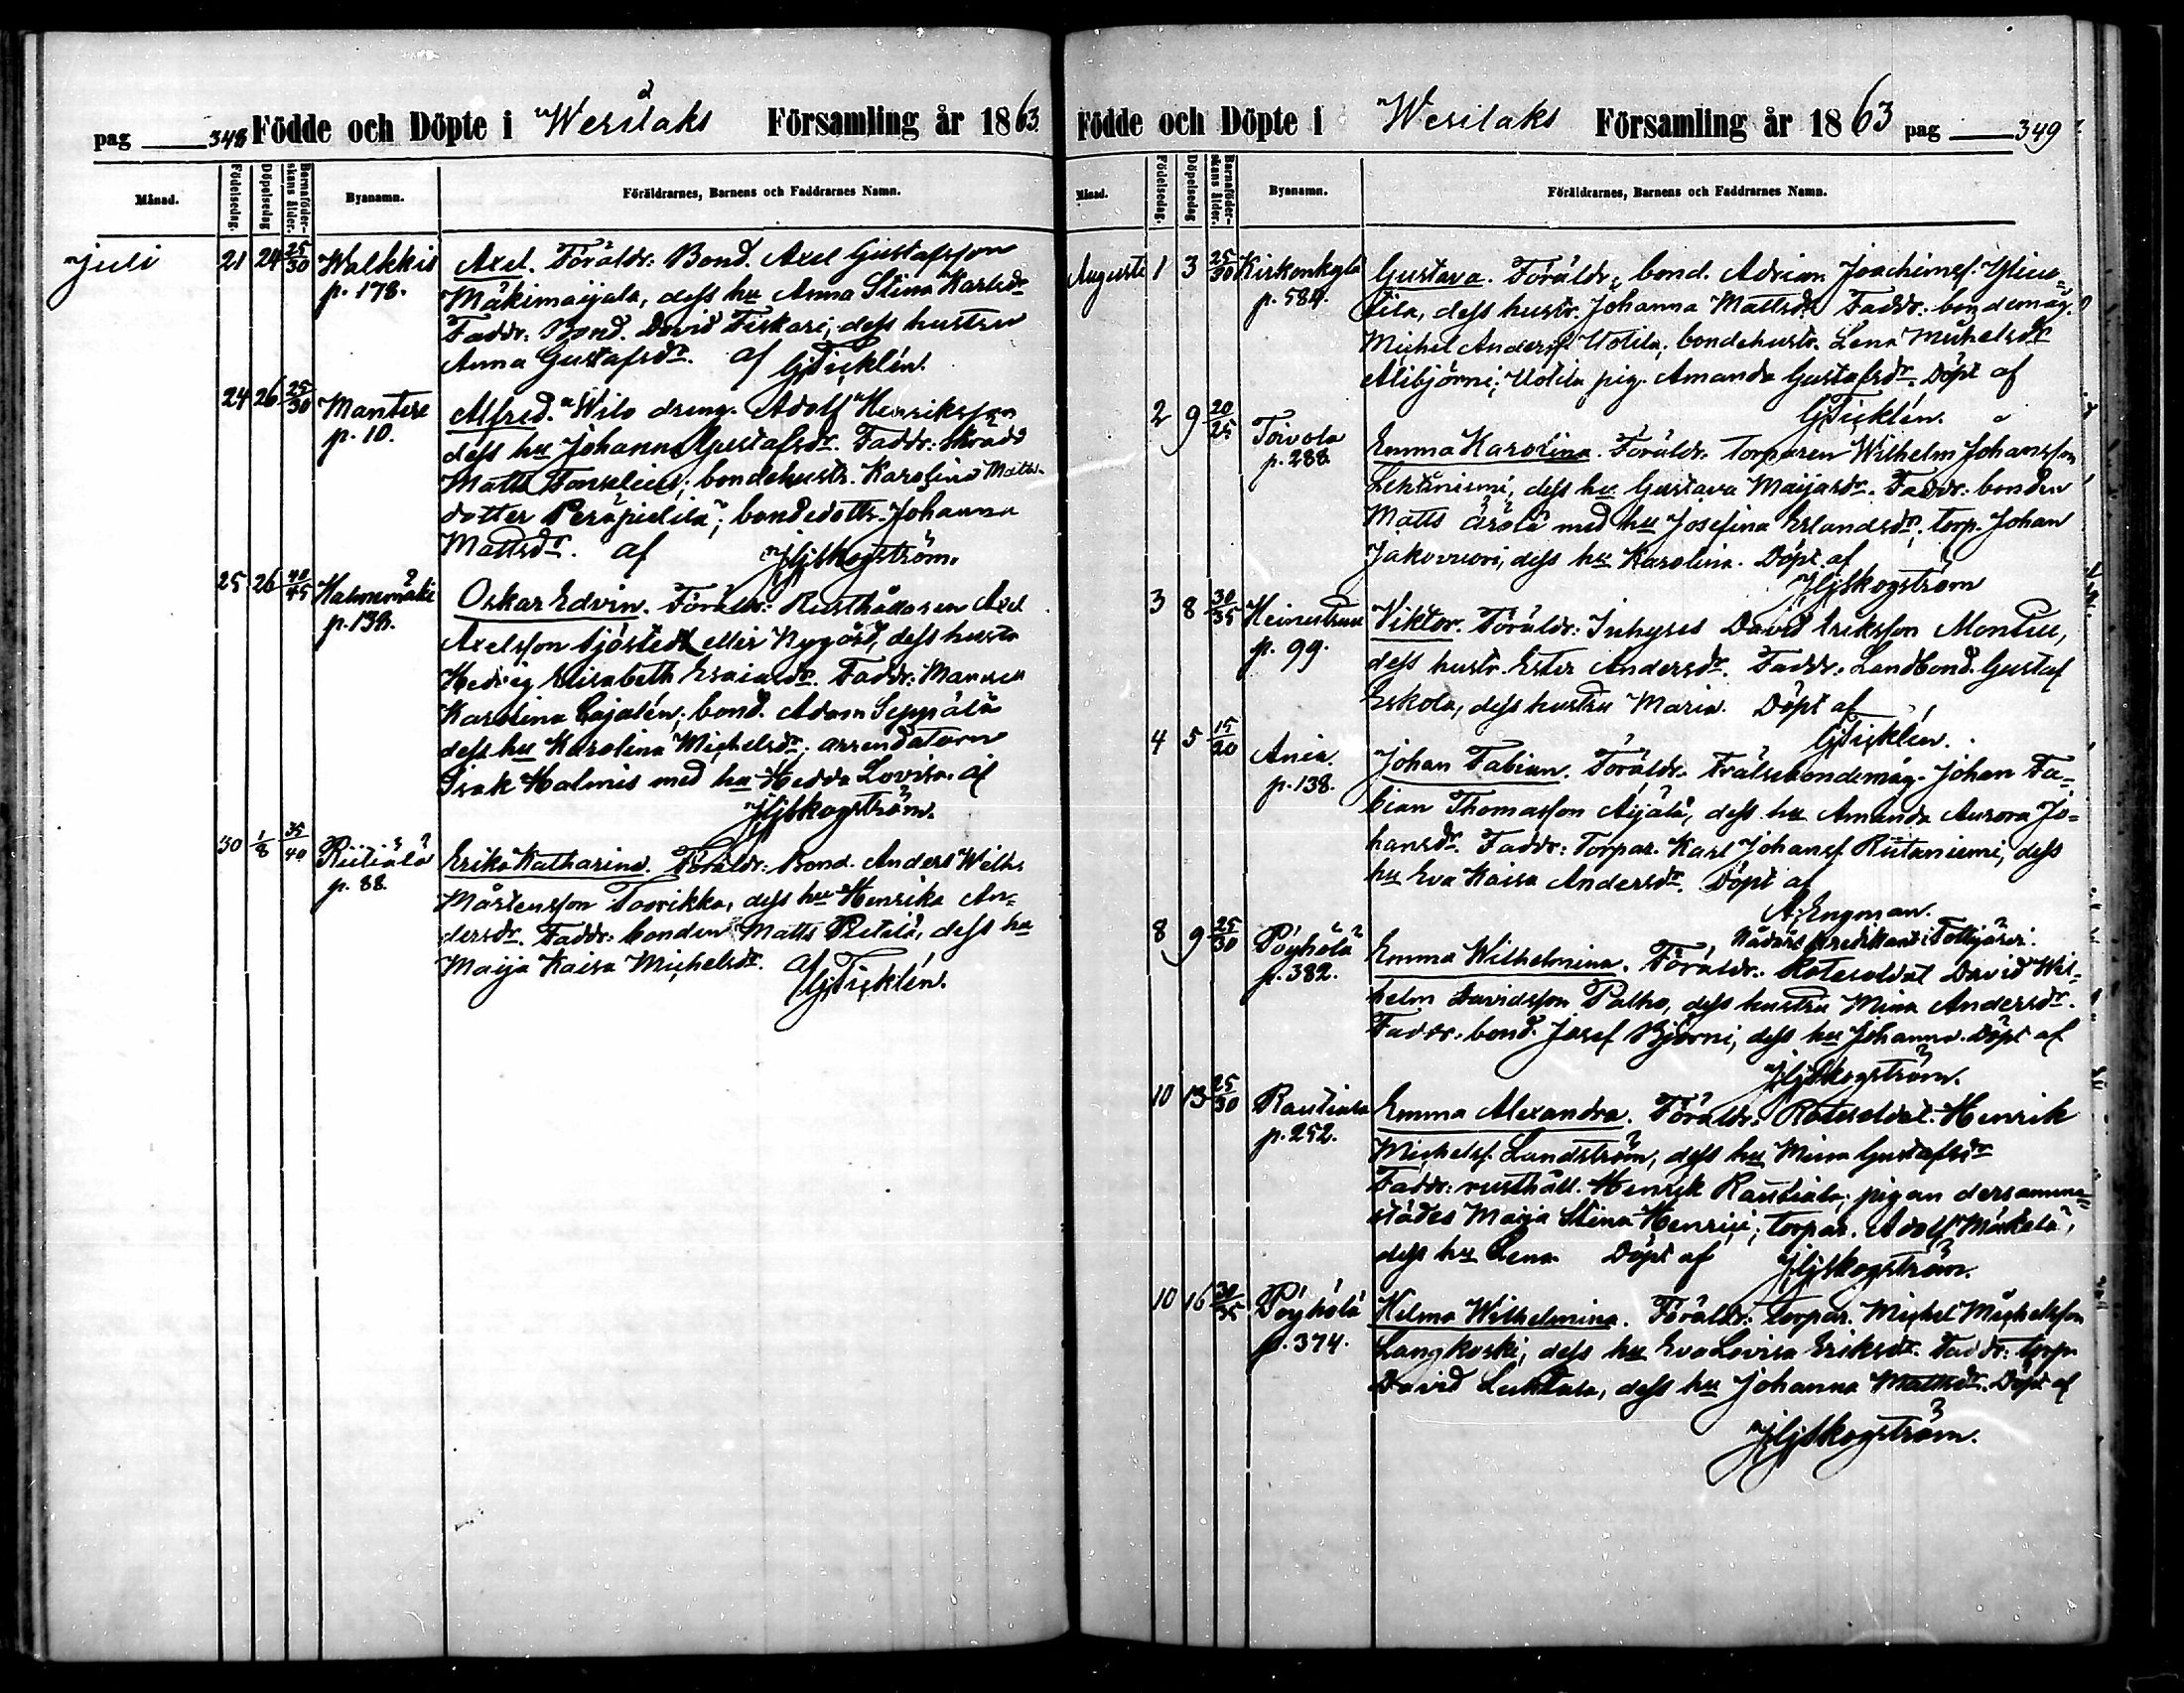 pag 348 Födde och Döpte i Wesilaks Församling år 1863
Månad. Födelsedag. Döpelsedag Barnaföderskans ålder. Byanamn. Föräldrarnes, Barnens och Faddrarnes Namn.
Juli 21 24 25/30 Walkkis Axel. Föräldr: Bond. Axel Gustafsson
p. 178. Mäkimaijala, dess hu Anna Stina Karlsdr
Faddr: Bond. David Fiskari, dess hustru
Anna Gustafsdr. af G Ticklén.
24 26 25/30 Mantere Alfred. Wilo dreng. Adolf Henriksson
p. 10. dess hu Johanna Gustafsdr. Faddr: Skrädd
Matts; bondehustr. Karolina Matts-
dotter Peräpietilä; bondedottr. Johanna
Mattsdr. af JGSkogström.
25 26 40/45 Halmemäki Oskar Edvin. Föräldr: Rusthållaren Axel
p. 139. Axelsson Sjöstedt eller Nygård, dess hustr
Hedvig Elisabeth Esaiaedr. Faddr: Mamsell
Karolina Cajalén; bond. Adam Seppälä
dess hu Karolina Michelsdr; arrendatorn
Isak Halmis med hu Hedda Lovisa. af
JGSkogström.
30 1/8 35/40 Riitiälä Erika Katharina. Föräldr: Bond. Anders Wilh.
p. 88. Mårtensson Toorikka, dess hu Henrika An-
dersdr. Faddr: bonden Matts Pietilä, dess hu
Maija Kaisa Michelsdr. af
G Ticklén.
Födde och Döpte i Wesilaks Församling år 1863 pag 349
Månad. Födelsedag. Döpelsedag Barnaföderskans ålder. Byanamn. Föräldrarnes, Barnens och Faddrarnes Namn.
Augusti 1 3 25/30 Kirkonkylä Gustava. Föräldr: bond. Adrian Joachimss. Ylius-
p. 584. tila, dess hustr. Johanna Mattsdr. Faddr: bondemåg.
Michel Anderss. Uotila; bondehustr. Lena Michelsdr
Alibjörni; Uotila pig. Amanda Gustafsdr. Döpt af
G Ticklén.
2 9 20/25 Toivola Emma Karolina. Föräldr: torparen Wilhelm Johansson
p. 288. Lehtiniemi, dess hu Gustava Maijasdr. Faddr: bonden
Matts Ärölä med hu Josefina Erlandsdr; torp. Johan
Jakovuori, dess hu Karolina. Döpt af
JGSkogström
3 8 30/35 Heinustruu Viktor. Föräldr: Inhyses David Eriksson Monttu,
p. 99. dess hustr. Ester Andersdr. Faddr: Landbond. Gustaf
Eskola, dess hustru Maria. Döpt af
G Ticklén.
4 5 15/20 Ania. Johan Fabian. Föräldr: Frälsebondemåg. Johan Fa-
p. 138. bian Thomasson Äijälä, dess hu Amanda Aurora Jo-
hansdr. Faddr: Torpar. Karl Johanss. Rutaniemi, dess
hu Eva Kaisa Andersdr. Döpt af
A. Engman.
Nådårs predikant i Tottijärvi.
8 9 25/30 Pöyhölä Emma Wilhelmina. Föräldr: Rotesoldat David Wil-
p. 382. helm Davidsson Palho, dess hustru Mina Andersdr.
Faddr. bond. Josef Björni, dess hu Johanna. Döpt af
JGSkogström.
10 13 25/30 Rautiala Emma Alexandra. Föräldr: Rotesoldat Henrik
p. 252. Michelss. Landström, dess hu Mina Gustafsdr
Faddr: rusthåll. Henrik Rautiala; pigan dersamma-
städes Maija Stina Henrici; torpar. Adolf Mäkelä,
dess hu Lena Döpt af JGSkogström.
10 16 30/35 Pöyhölä Hilma Wilhelmina. Föräldr: torpar. Michel Michelsson
p. 374. Langkoski, dess hu Eva Lovisa Eriksdr. Faddr: torp.
David Luhtala, dess hu Johanna Mattsdr. Döpt af
JGSkogström.